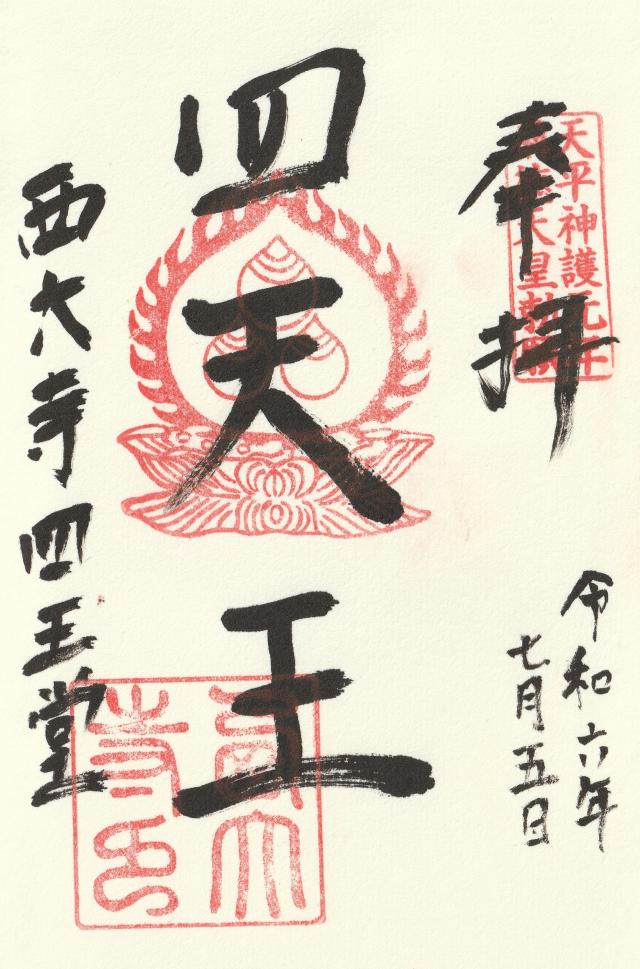 奉拝
天平神護元年
天皇勅願
令和六年
七月五日
四天王
西大寺四王堂
西大
寺印